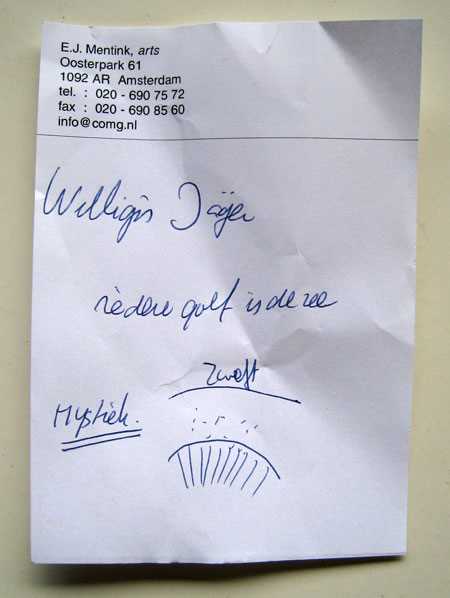 E.J. Mentink, arts
Oosterpark 61
1092 AR Amsterdam
tel. : 020 - 690 75 72
fax : 020 - 690 85 60
info@comg.nl
Willigis Jäger
iedere golf is de zee
Mystiek.